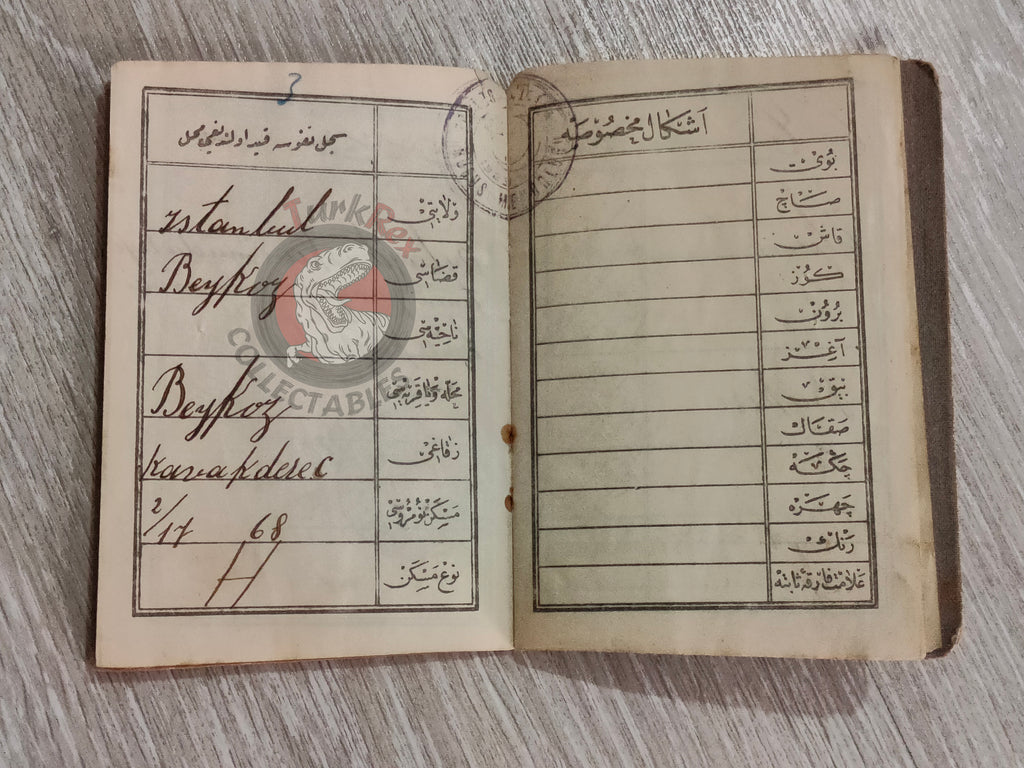 3
سجل نفوسه قيد اولنديغى محل
ولايتى
Istanbul
قضاسى
Beykoz
ناحيه سى
محله ويا قريه سى
Beykoz
زقاغى
Kavakderec
مسكن نومروسى
2/17 68
نوع مسكن
H
TurkRex
COLLECTABLES
اشكال مخصوصه
بوى
صاچ
قاش
كوز
بورون
آغز
بييق
صقال
چكه
چهره
رنك
علامت فارقهٔ ثابته